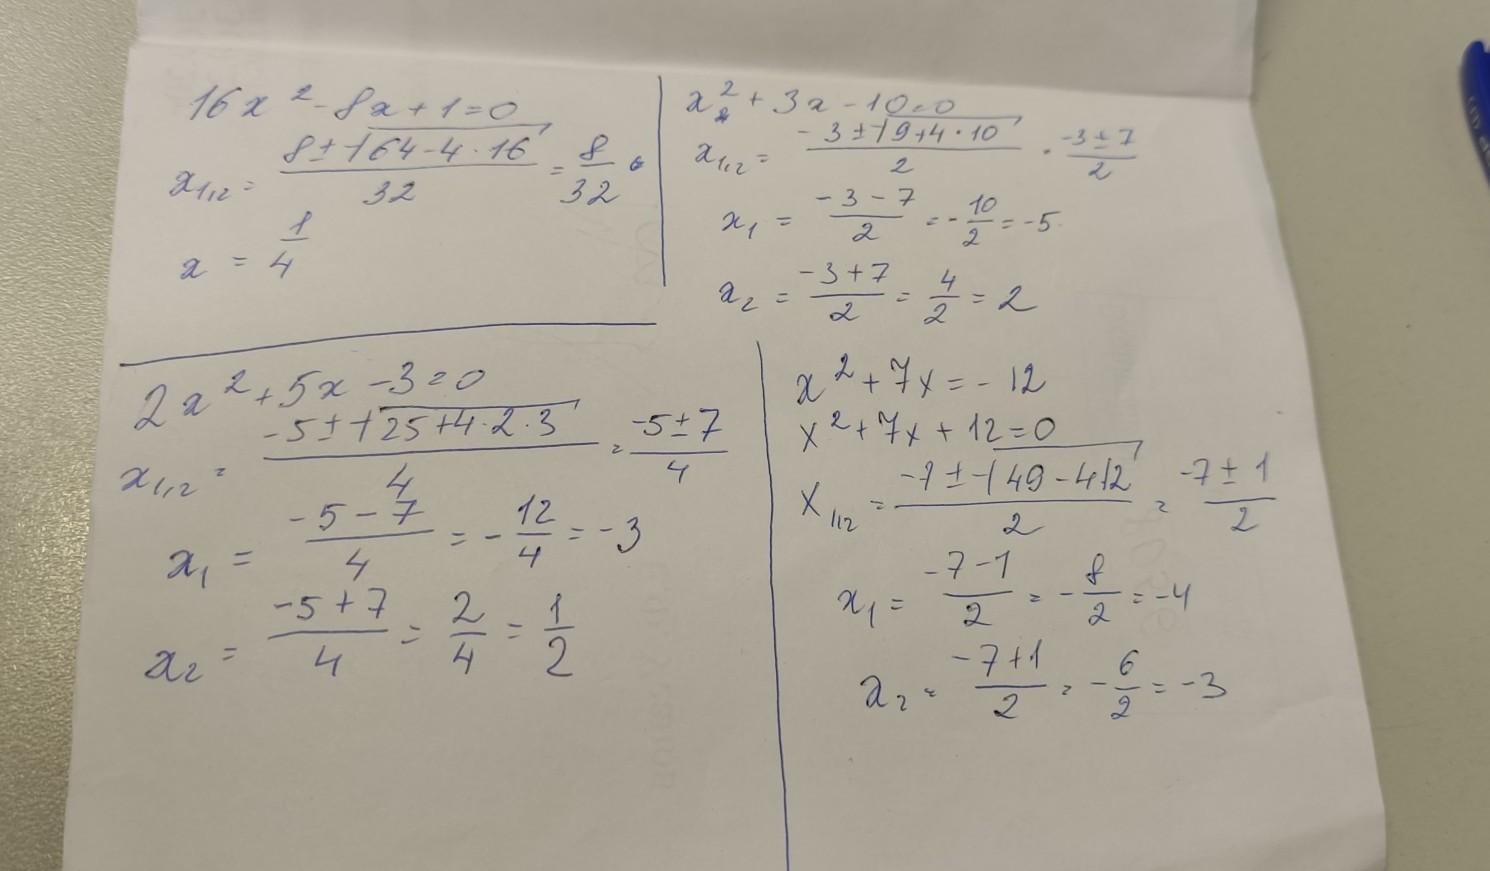 16x² - 8x + 1 = 0
x₁,₂ = (8 ± √(64 - 4 · 16))/32 = 8/32
x = 1/4
x² + 3x - 10 = 0
x₁,₂ = (-3 ± √(9 + 4 · 10))/2 = (-3 ± 7)/2
x₁ = (-3 - 7)/2 = -10/2 = -5
x₂ = (-3 + 7)/2 = 4/2 = 2
2x² + 5x - 3 = 0
x₁,₂ = (-5 ± √(25 + 4 · 2 · 3))/4 = (-5 ± 7)/4
x₁ = (-5 - 7)/4 = -12/4 = -3
x₂ = (-5 + 7)/4 = 2/4 = 1/2
x² + 7x = -12
x² + 7x + 12 = 0
x₁,₂ = (-7 ± √(49 - 4·12))/2 = (-7 ± 1)/2
x₁ = (-7 - 1)/2 = -8/2 = -4
x₂ = (-7 + 1)/2 = -6/2 = -3